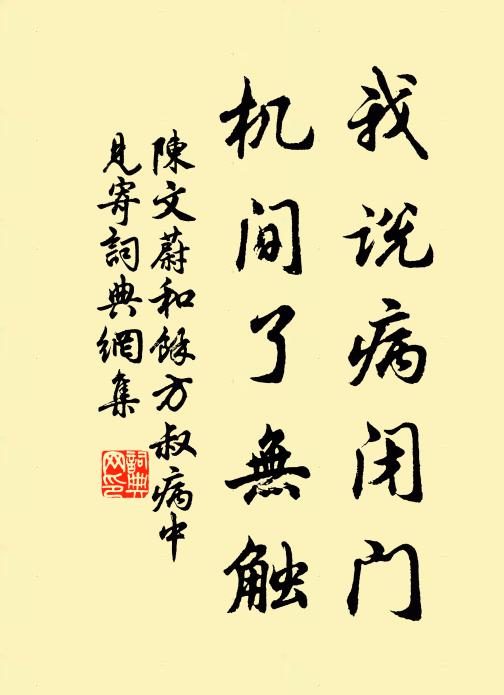 我说病闭门
机间了無触
陳文蔚和餘方叔病中
見寄詞典網集
詞典
网印